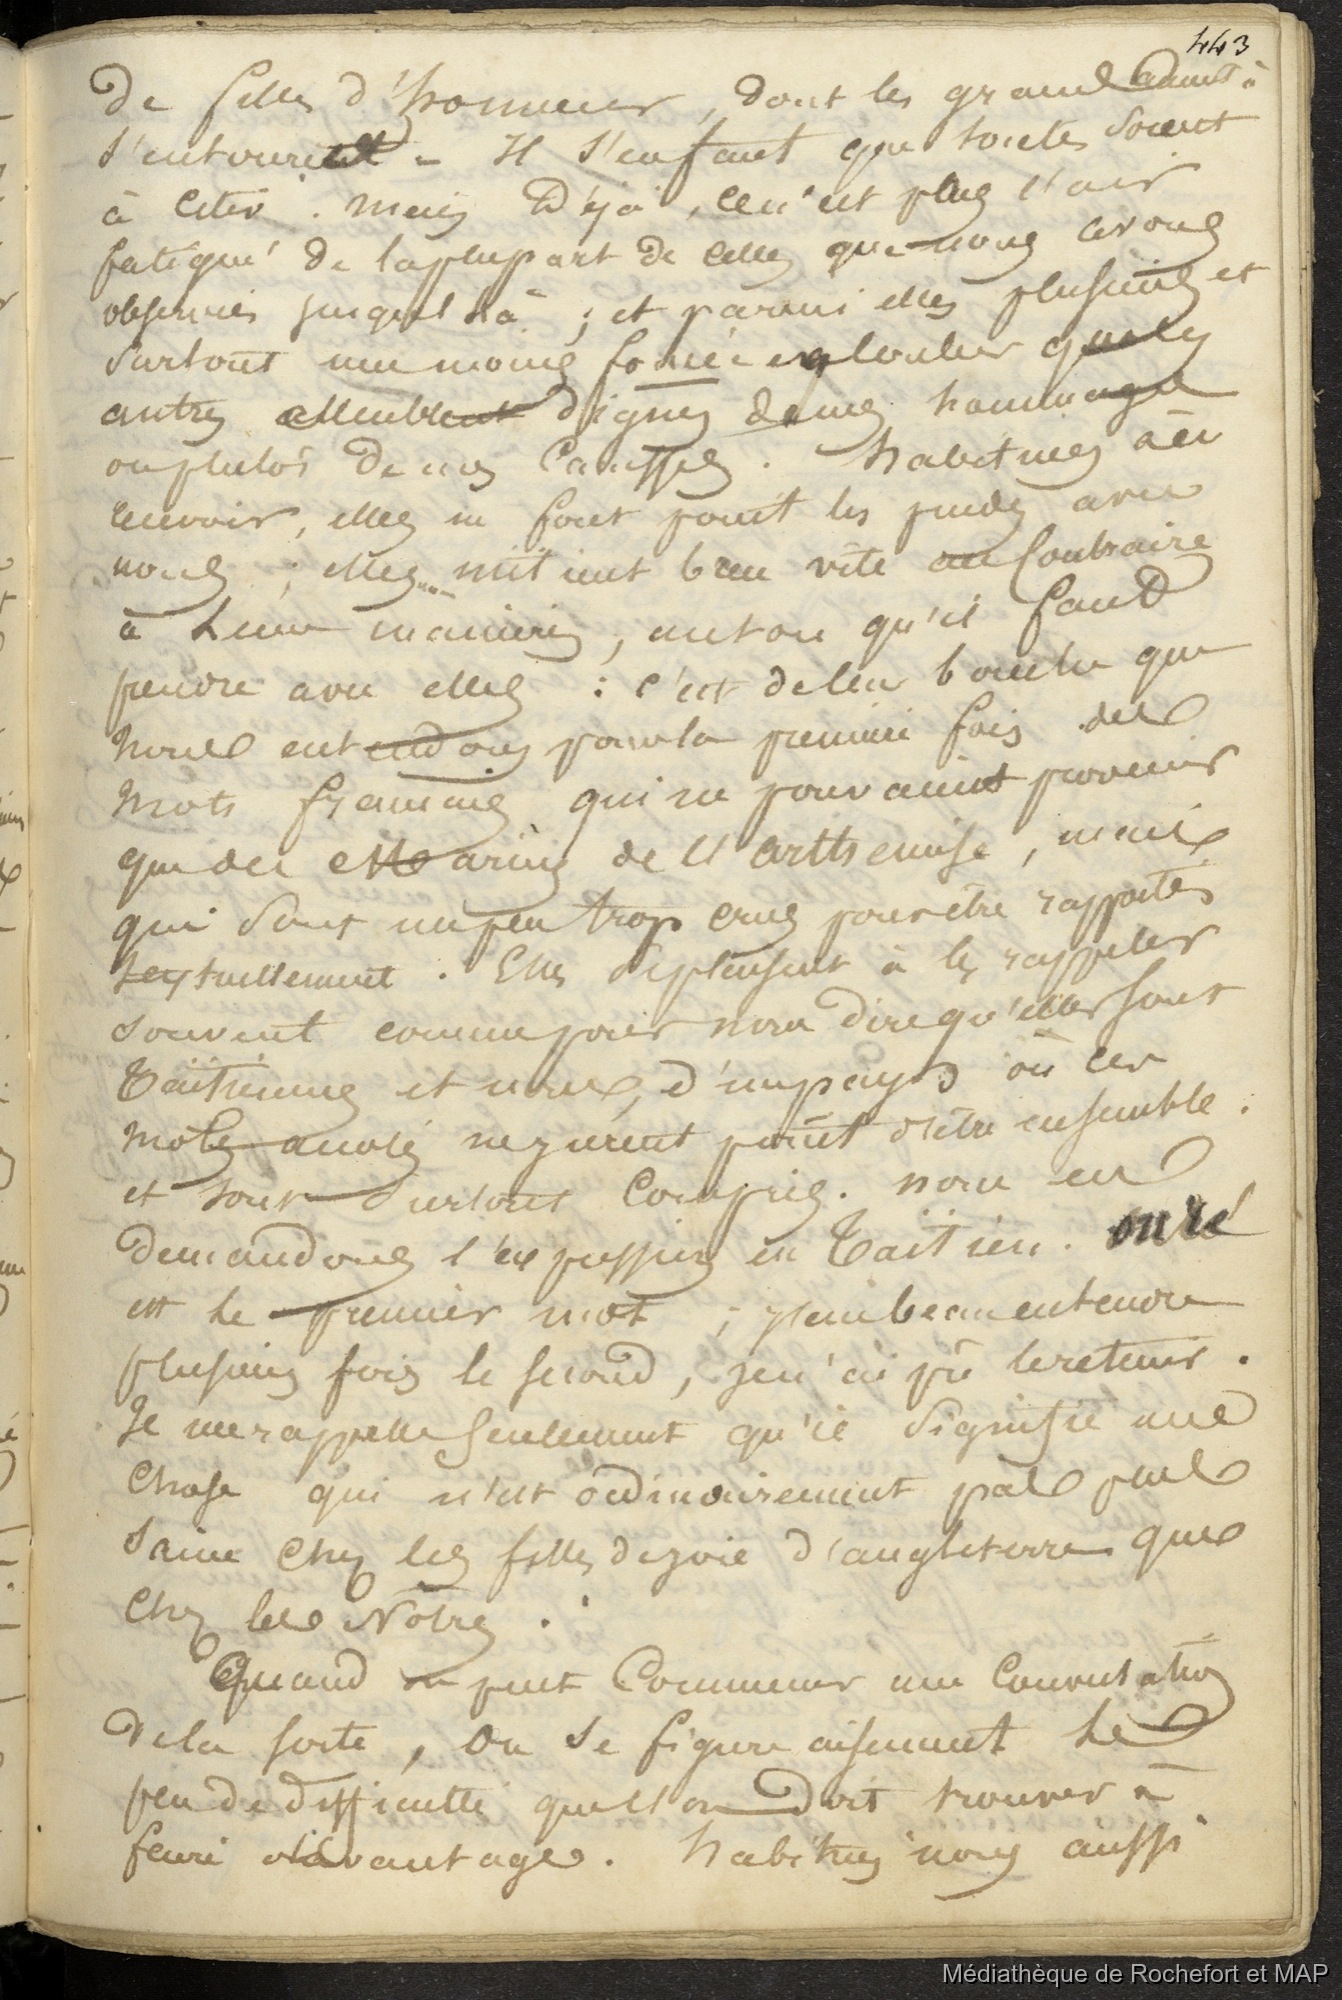 443
De filles d'honneur, dont les grands aiment à
s'entourer. Il s'en faut que toutes soient
à citer. Mais déjà, ce n'est plus l'air
fatigué de la plupart de celles que nous avons
observées jusque là ; et parmi elles plusieurs et
surtout une moins foncée en couleur que les
autres semblent dignes de nos hommages
ou plutôt de nos caresses. habituées à en
recevoir, elles ne font point les prudes avec
nous ; elles mettent bien vîte au contraire
à leur manières, au ton qu'il faut
prendre avec elles : c'est de leur bouche que
nous entendons pour la première fois des
mots français qui ne pouvaient provenir
que des Marins de l'Arthémise, mais
qui sont un peu trop crus pour être rapportés
textuellement. Elles se plaisent à les rappeler
souvent comme pour nous dire qu'elles sont
Taïtiennes et nous, d'un pays où ces
mots accolés ne jurent point d'être ensemble.
et sont surtout compris. nous en
demandons l'expression en Taïtien. ouré
est le premier mot ; j'ai beau entendre
plusieurs fois le second, je n'ai pû le retenir.
Je me rappelle seulement qu'il signifie une
chose qui n'est ordinairement pas plus
saine chez les filles de joie d'angleterre que
chez les Nôtres.
Quand on peut commencer une conversation
de la sorte, on se figure aisément le
peu de difficulté que l'on doit trouver à
faire davantage. habitués nous aussi
Médiathèque de Rochefort et MAP